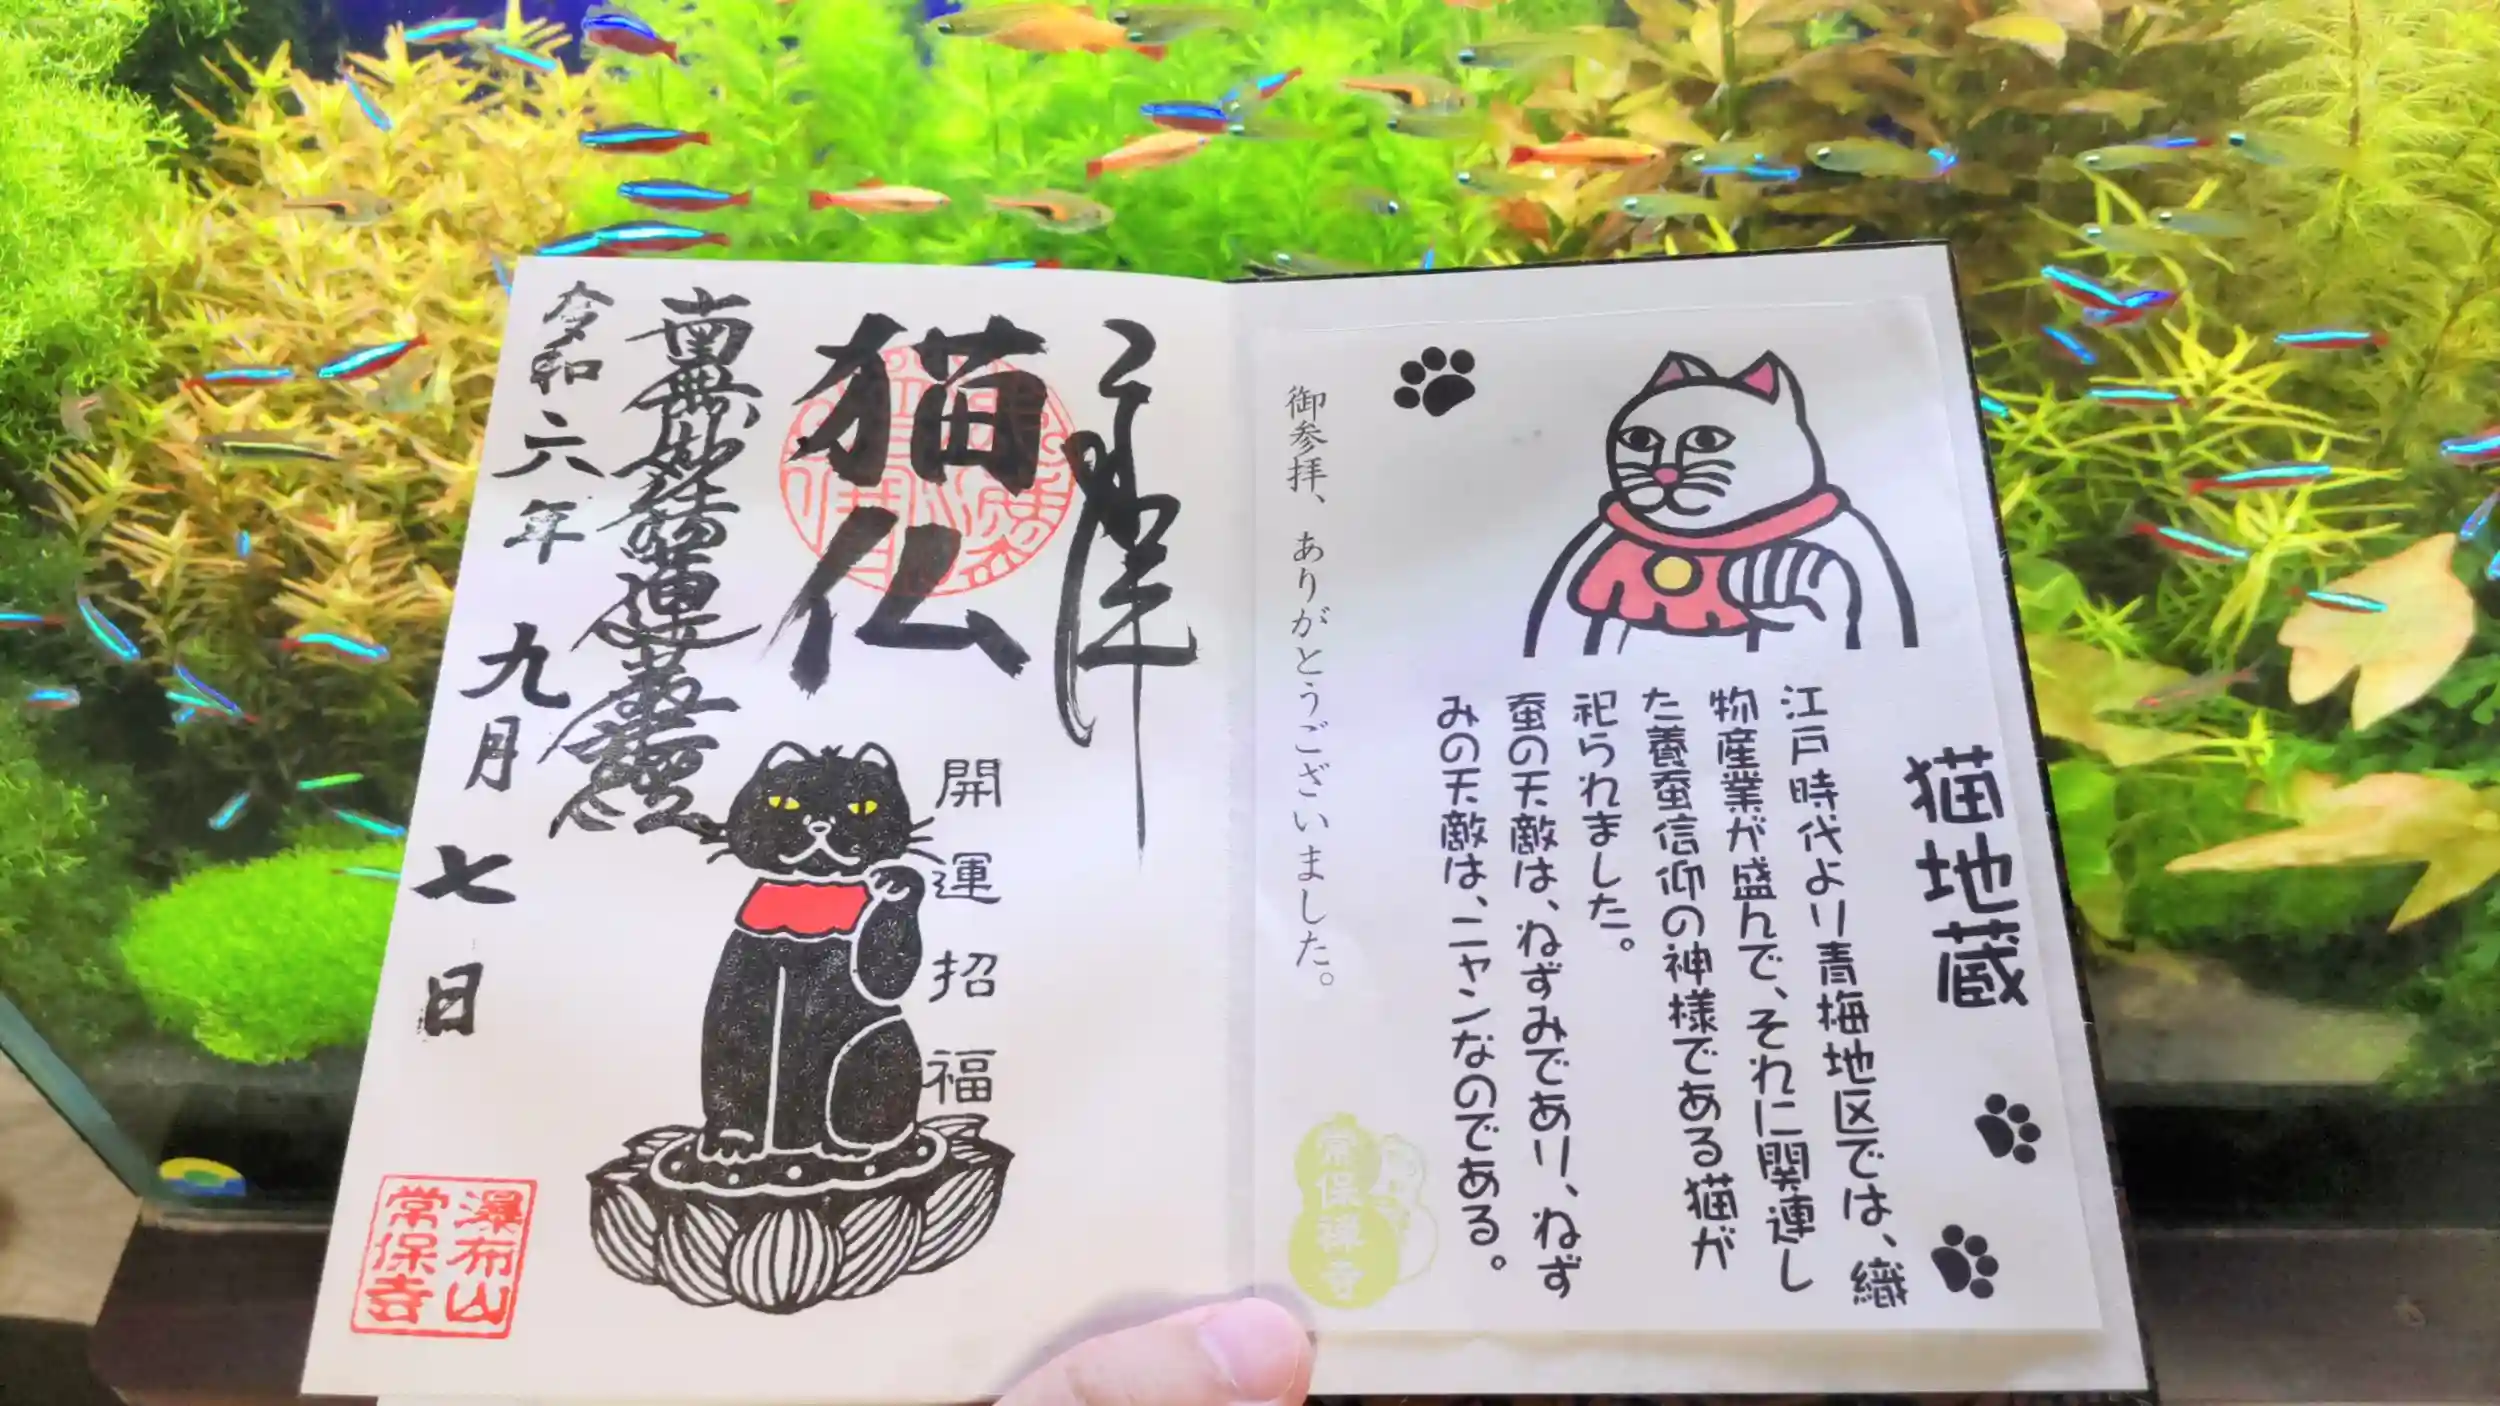 猫地蔵
江戸時代より青梅地区では、織
物産業が盛んで、それに関連し
た養蚕信仰の神様である猫が
祀られました。
蚕の天敵は、ねずみであり、ねず
みの天敵は、ニャンなのである。
御参拝、ありがとうございました。
常保禅寺
奉拝
猫仏
開運招福
南無妙法蓮華経
令和六年九月七日
瀑布山
常保寺